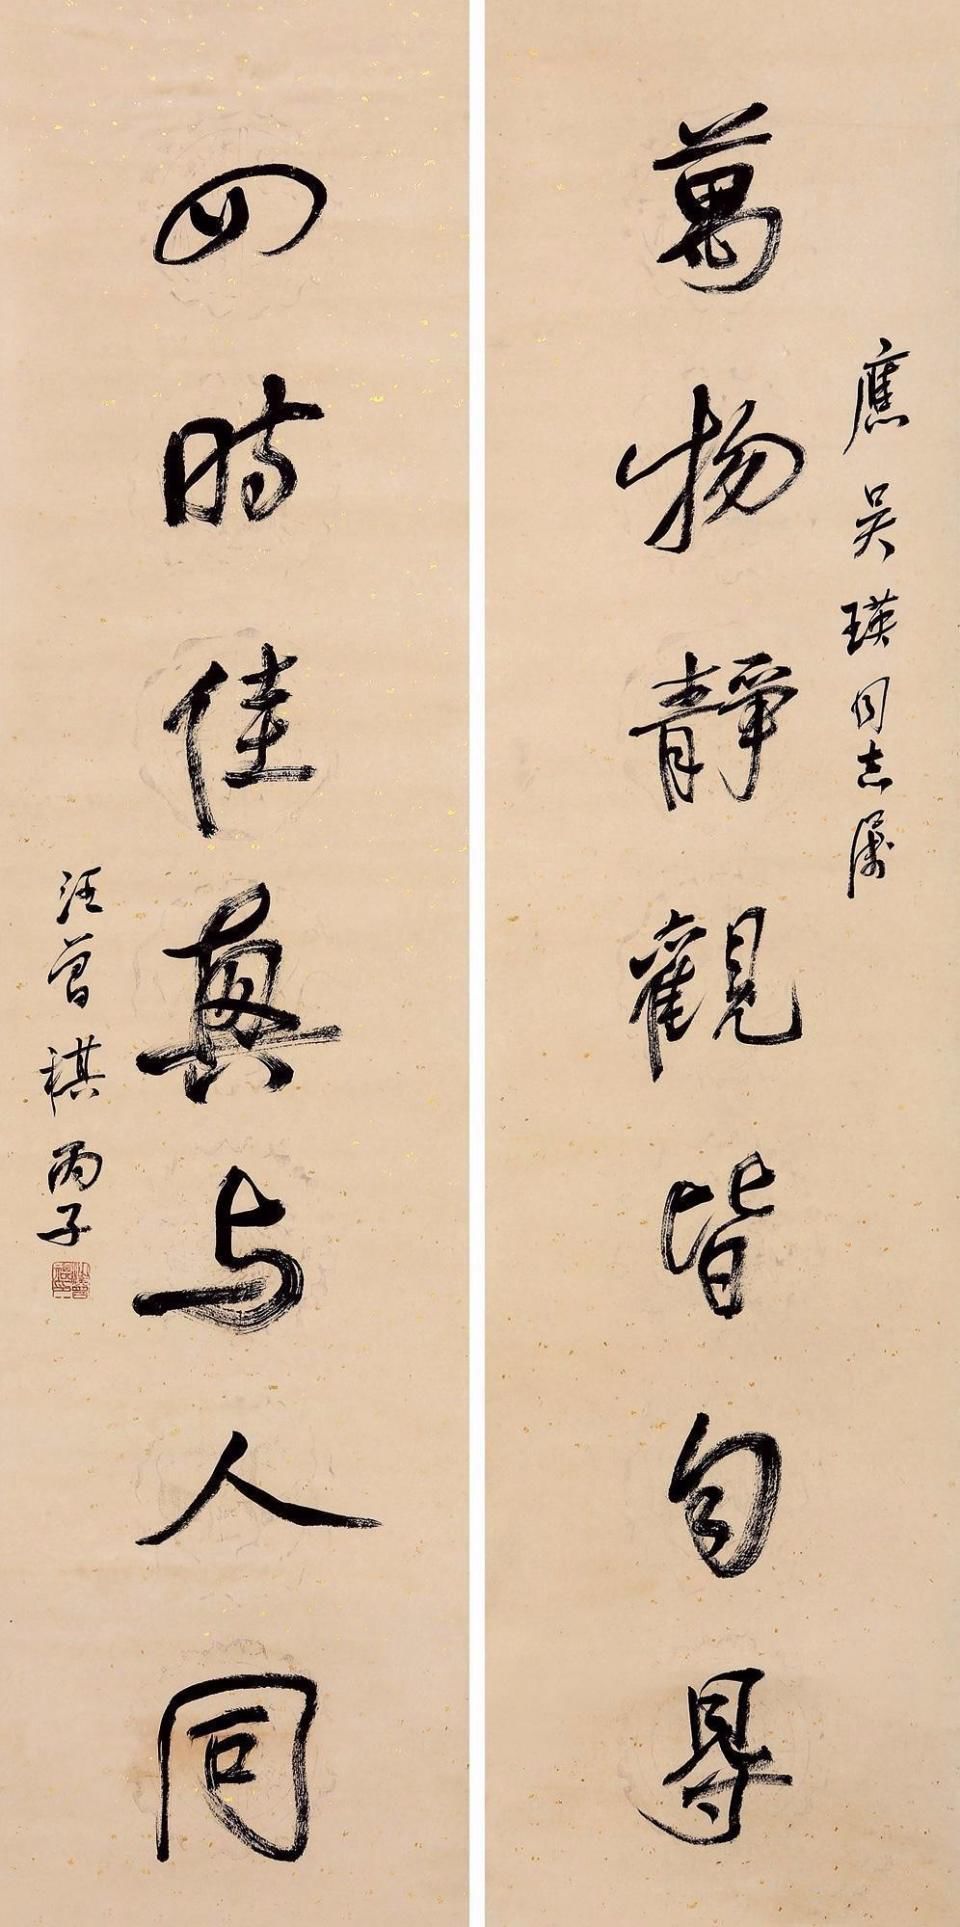 應吴瑛同志属
萬物靜觀皆自得
四時佳興与人同
汪曾祺丙子